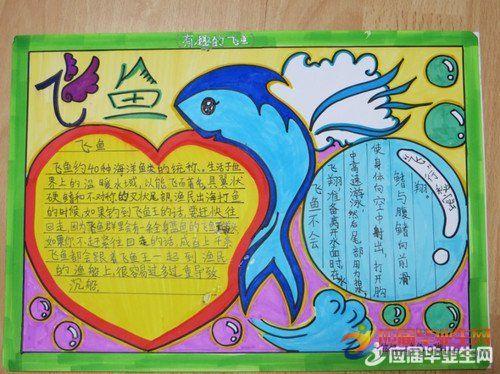 有趣的飞鱼
飞鱼
飞鱼
飞鱼约40种海洋鱼类的统称,生活于世
界上的温暖水域,以能飞而著名,具翼状
硬鳍和不对称的叉状尾部,渔民出海打鱼
的时候,如果钓到飞鱼王的话,要赶快往
回走,因为飞鱼群里会有一种蓝色的飞鱼
如果你不赶紧往回走的话,成百上千条
飞鱼都会跟着飞鱼王一起到渔民
的渔船上,很容易过多过重导致
沉船.
飞鱼不会
飞翔准备离开水面时,在水
中高速游泳然后尾部用力
使身体向空中射出,打开胸
鳍与腹鳍向前滑
翔.
应届毕业生网
应届毕业生网